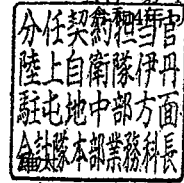 令和4年
分任契約担当官
陸上自衛隊伊丹
駐屯地中部方面
会計隊本部業務科長